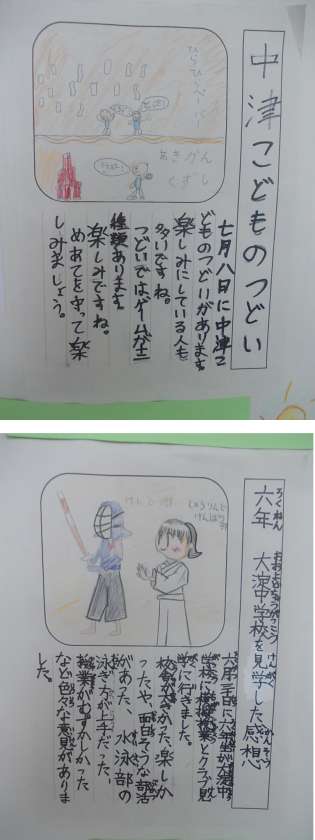 中津こどものつどい
ひらひらペーパー
あきかん
くずし
七月八日に中津こ
どものつどいがあります
楽しみにしている人も
多いですね。
つどいではゲームが十二
種類あります。
楽しみですね。
めあてを守って楽
しみましょう。
六年 大淀中学校を見学した感想
ろくねん
けんどう部
しょうりんじ
けんぽう部
六月三日に六年生が大淀中
学校に模擬授業とクラブ見
学に行きました。
校舎が大きかった、楽しか
ったや、面白そうな部活
があった、水泳部の
泳ぎ方が上手だった、
授業がむずかしかった
など色々な意見がありま
した。